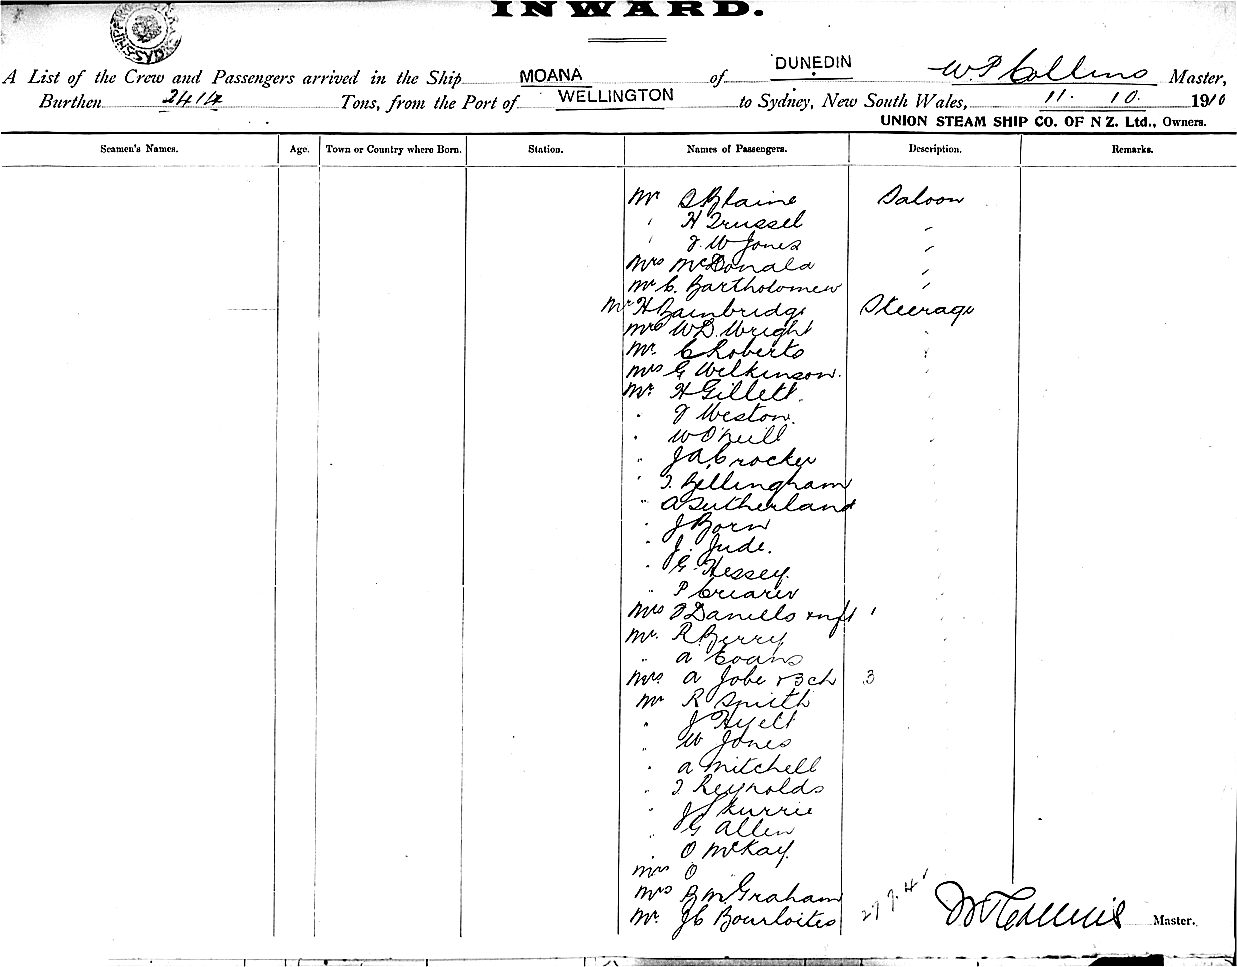 INWARD.
A List of the Crew and Passengers arrived in the Ship MOANA of DUNEDIN W P Collins Master,
Burthen 2414 Tons, from the Port of WELLINGTON to Sydney, New South Wales, 11. 10. 1910
UNION STEAM SHIP CO. OF N Z. Ltd., Owners.
Seamen's Names. Age. Town or Country where Born. Station. Names of Passengers. Description. Remarks.
Mr S Blaine Saloon
" H Trussel "
" J W Jones "
Mrs McDonald "
Mr C. Bartholomew "
Mr H Bainbridge Steerage
Mrs W D. Wright "
Mr. C Roberts "
Mrs G Wilkinson. "
Mr. H Gillett. "
" J Weston. "
" W O'Neill "
" J A Crocker "
" T. Bellingham "
" A Sutherland "
" J Born "
" J. Jude. "
" G. Hessey. "
" P "
Mrs J Daniells + inft 1
Mr. R. Berry
" A Evans
Mrs. A Jobe + 3 ch 3
Mr R Smith
" J Hyett
" W Jones
" A Mitchell
" T Reynolds
" J Kurrie
" G Allen
" O McKay.
Mrs O
Mrs B M Graham 27 7. 4 1
Mr. J C Master.